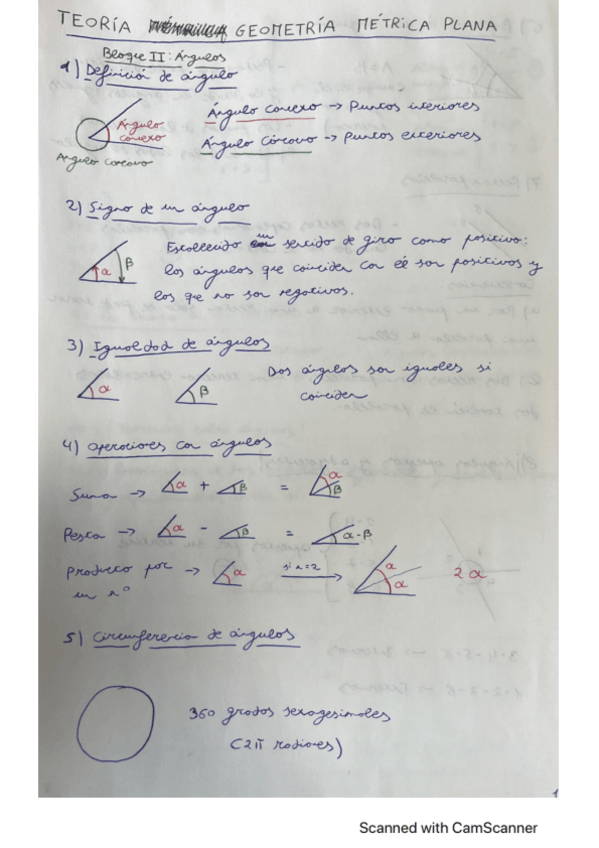 TEORÍA GEOMETRÍA MÉTRICA PLANA
Bloque II: Ángulos
1) Definición de ángulo
Ángulo convexo
Ángulo cóncavo
Ángulo convexo → Puntos interiores
Ángulo Cóncavo → Puntos exteriores
2) Signo de un ángulo
α β
Escollecido un sentido de giro como positivo:
los ángulos que coinciden con él son positivos y
los que no son negativos.
3) Igualdad de ángulos
α β
Dos ángulos son iguales si
coinciden
4) Operaciones con ángulos
Suma → α + β = α β
Resta → α - β = α-β
Producto por → α si n=2 → α α 2α
un nº
5) Circunferencia de ángulos
360 grados sexagesimales
(2π radianes)
1
Scanned with CamScanner